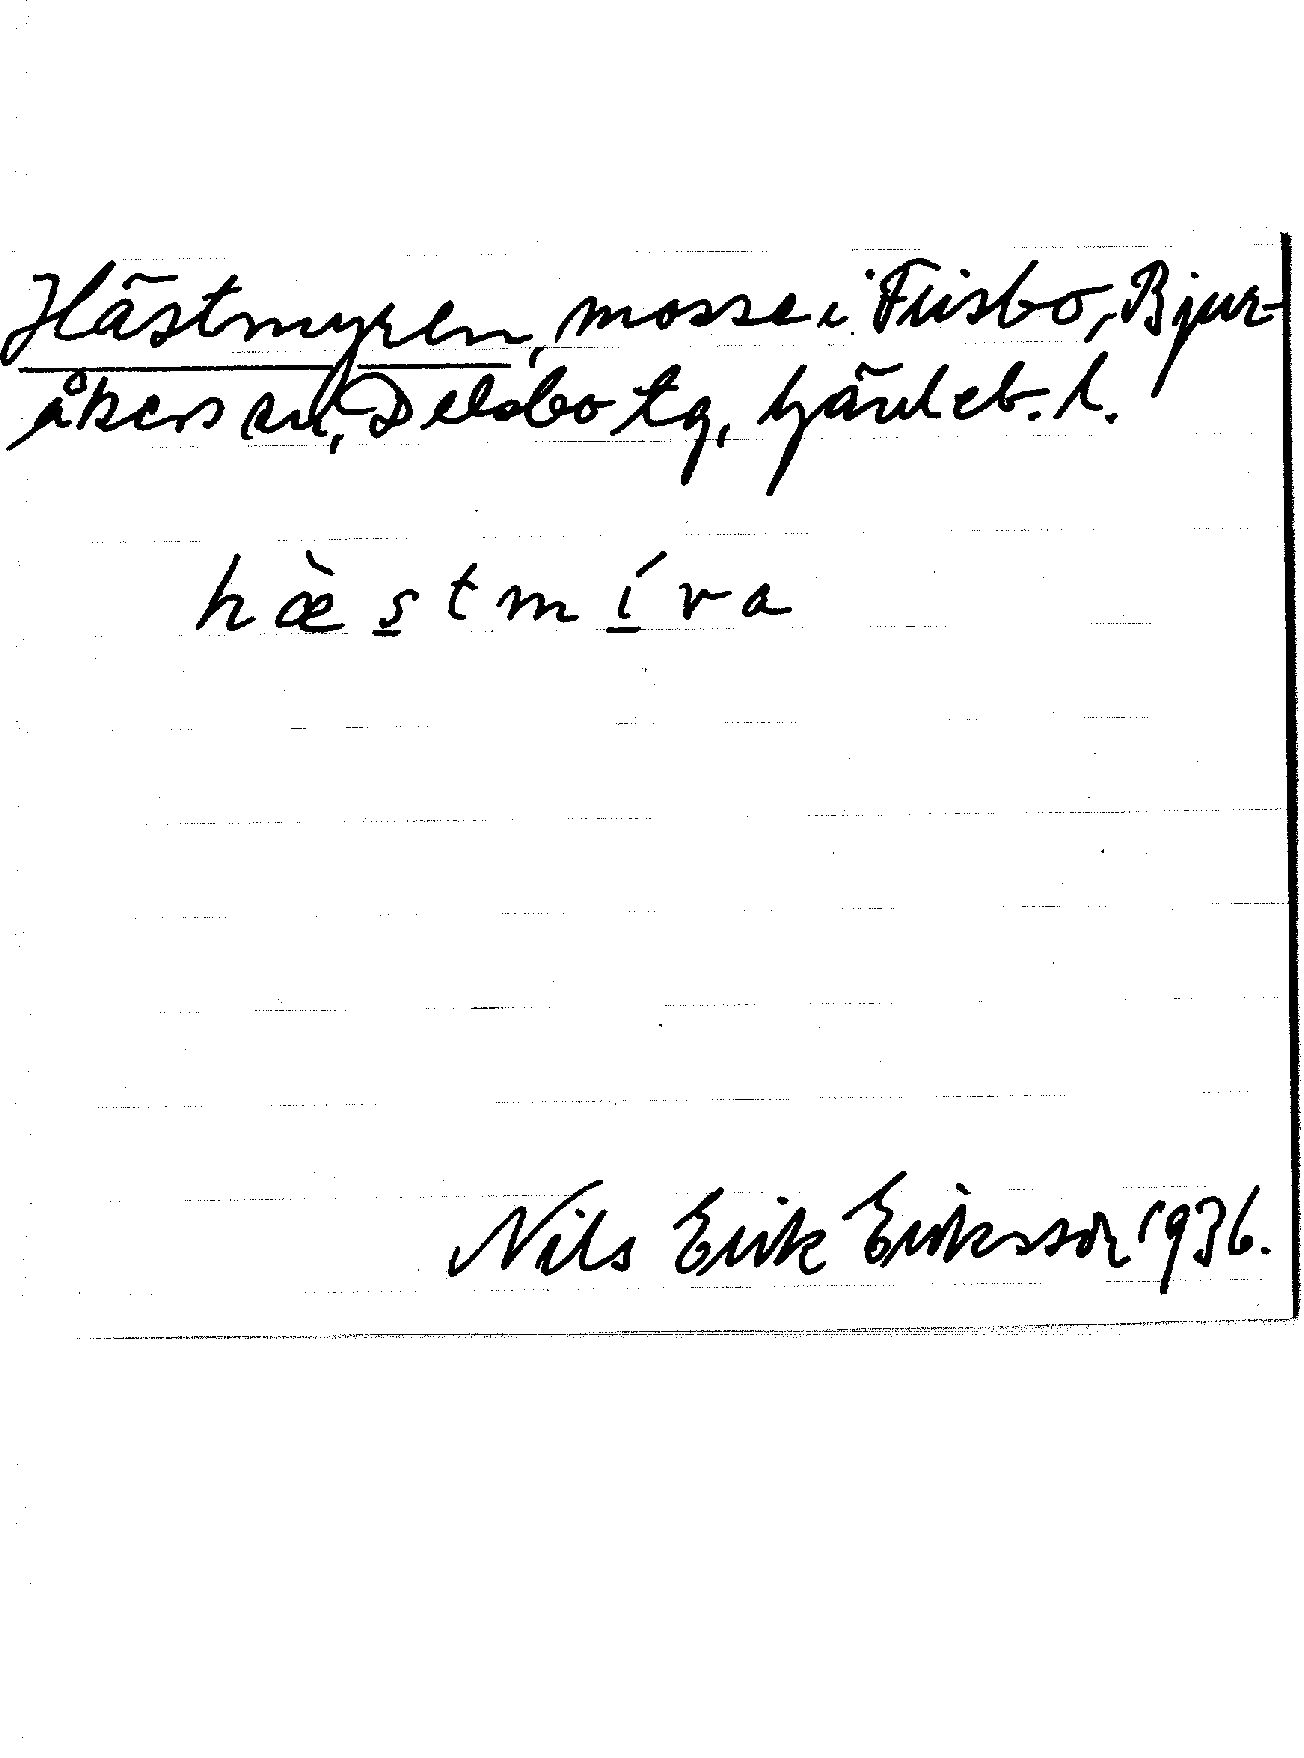 Hästmyren, mosse i Friisbo, Bjur-
åkers sn, Delsbo tg, Gävleb. l.
hæ̀s̱tmí̱va
Nils Erik Eriksson 1936.